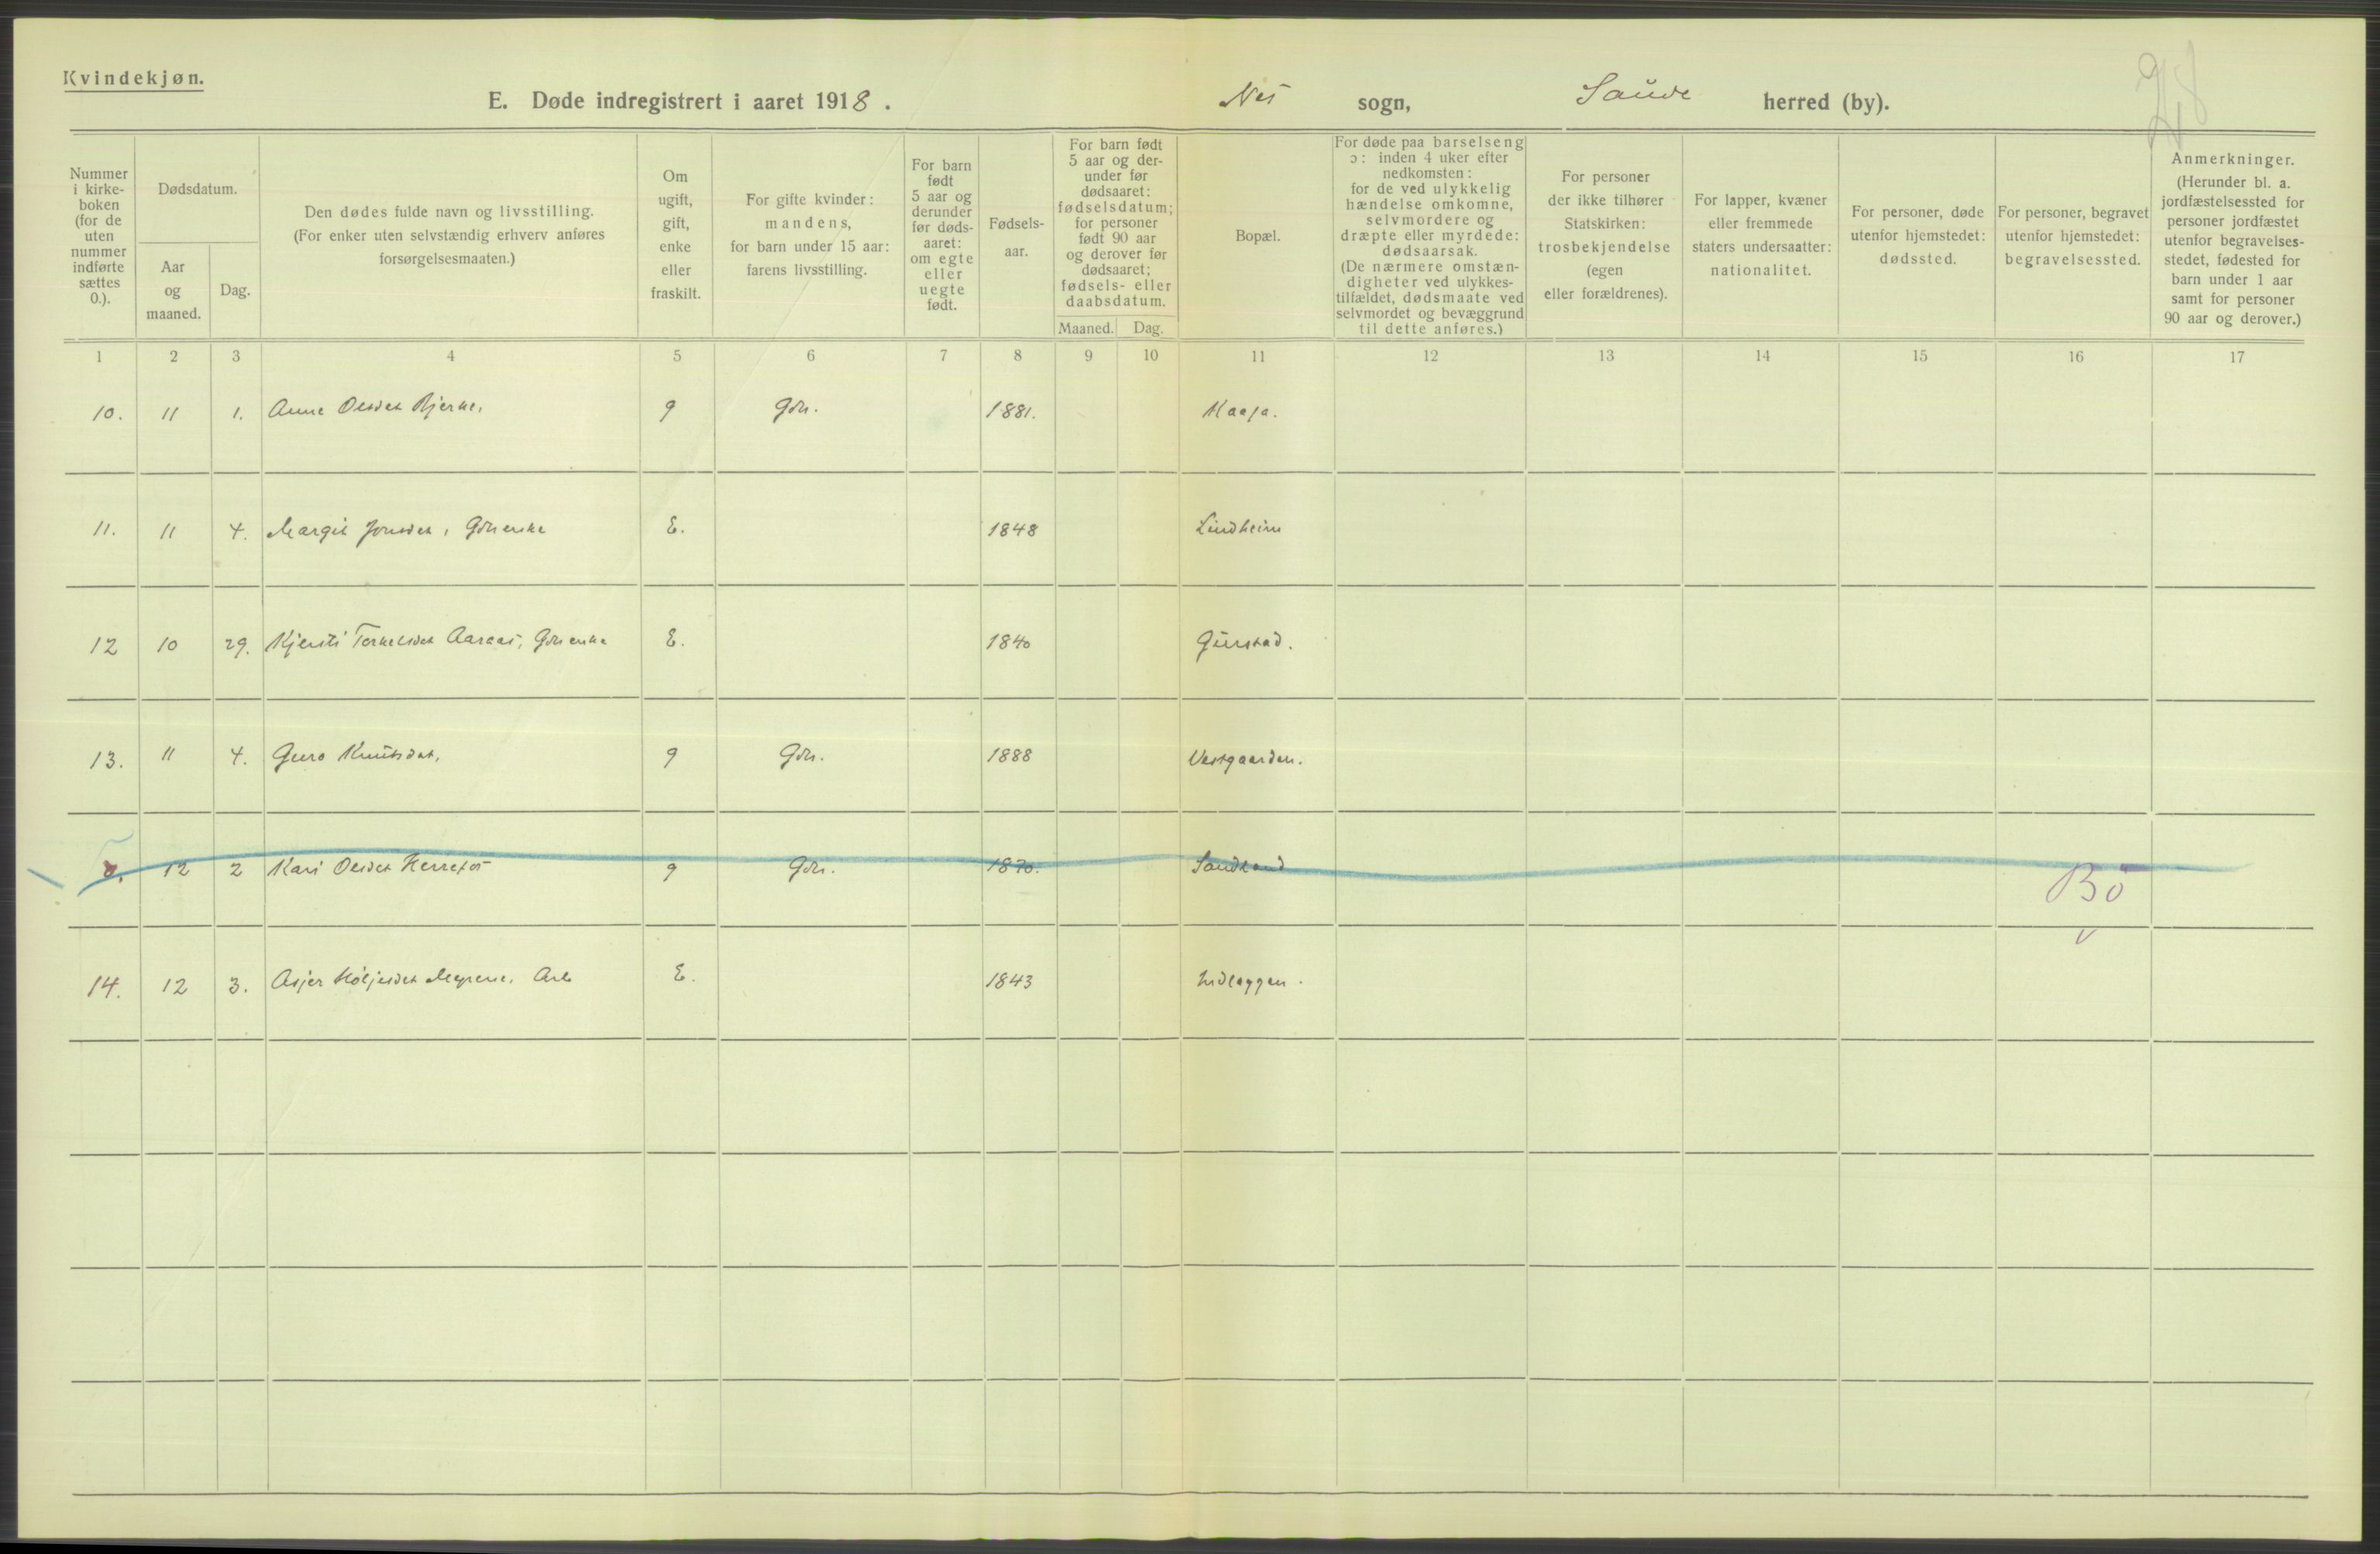 Kvindekjøn.
E. Døde indregistrert i aaret 1918. Nes sogn, Saude herred (by).
28
Nummer i kirke-boken (for de uten nummer indførte sættes 0.).
Dødsdatum.
Aar og maaned.
Dag.
Den dødes fulde navn og livsstilling. (For enker uten selvstændig erhverv anføres forsørgelsesmaaten.)
Om ugift, gift, enke eller fraskilt.
For gifte kvinder: mandens, for barn under 15 aar: farens livsstilling.
For barn født 5 aar og derunder før døds-aaret: om egte eller uegte født.
Fødsels-aar.
For barn født 5 aar og der-under før dødsaaret: fødselsdatum; for personer født 90 aar og derover før dødsaaret; fødsels- eller daabsdatum.
Maaned. Dag.
Bopæl.
For døde paa barselseng ɔ: inden 4 uker efter nedkomsten: for de ved ulykkelig hændelse omkomne, selvmordere og dræpte eller myrdede: dødsaarsak. (De nærmere omstæn-digheter ved ulykkes-tilfældet, dødsmaate ved selvmordet og bevæggrund til dette anføres.)
For personer der ikke tilhører Statskirken: trosbekjendelse (egen eller forældrenes).
For lapper, kvæner eller fremmede staters undersaatter: nationalitet.
For personer, døde utenfor hjemstedet: dødssted.
For personer, begravet utenfor hjemstedet: begravelsessted.
Anmerkninger. (Herunder bl. a. jordfæstelsessted for personer jordfæstet utenfor begravelses-stedet, fødested for barn under 1 aar samt for personer 90 aar og derover.)
1 2 3 4 5 6 7 8 9 10 11 12 13 14 15 16 17
10. 11 1. Anne Olsdat Bjerke, g Gbr. 1881. Kaasa.
11. 11 4. Margit Jonsdat, Gbr enke E. 1848 Lindheim
12 10 29. Kjersti Torkelsdat Aaraas, Gbr enke E. 1840 Gurstad.
13. 11 4. Guro Knutsdat, g Gbr. 1888 Vestgaarden.
0. 12 2 Kari Olsdat Herrefos g Gbr. 1870. Sandland Bö
14. 12 3. Asjer Höljesdat Myrene, Arb E. 1843 Indlæggen.